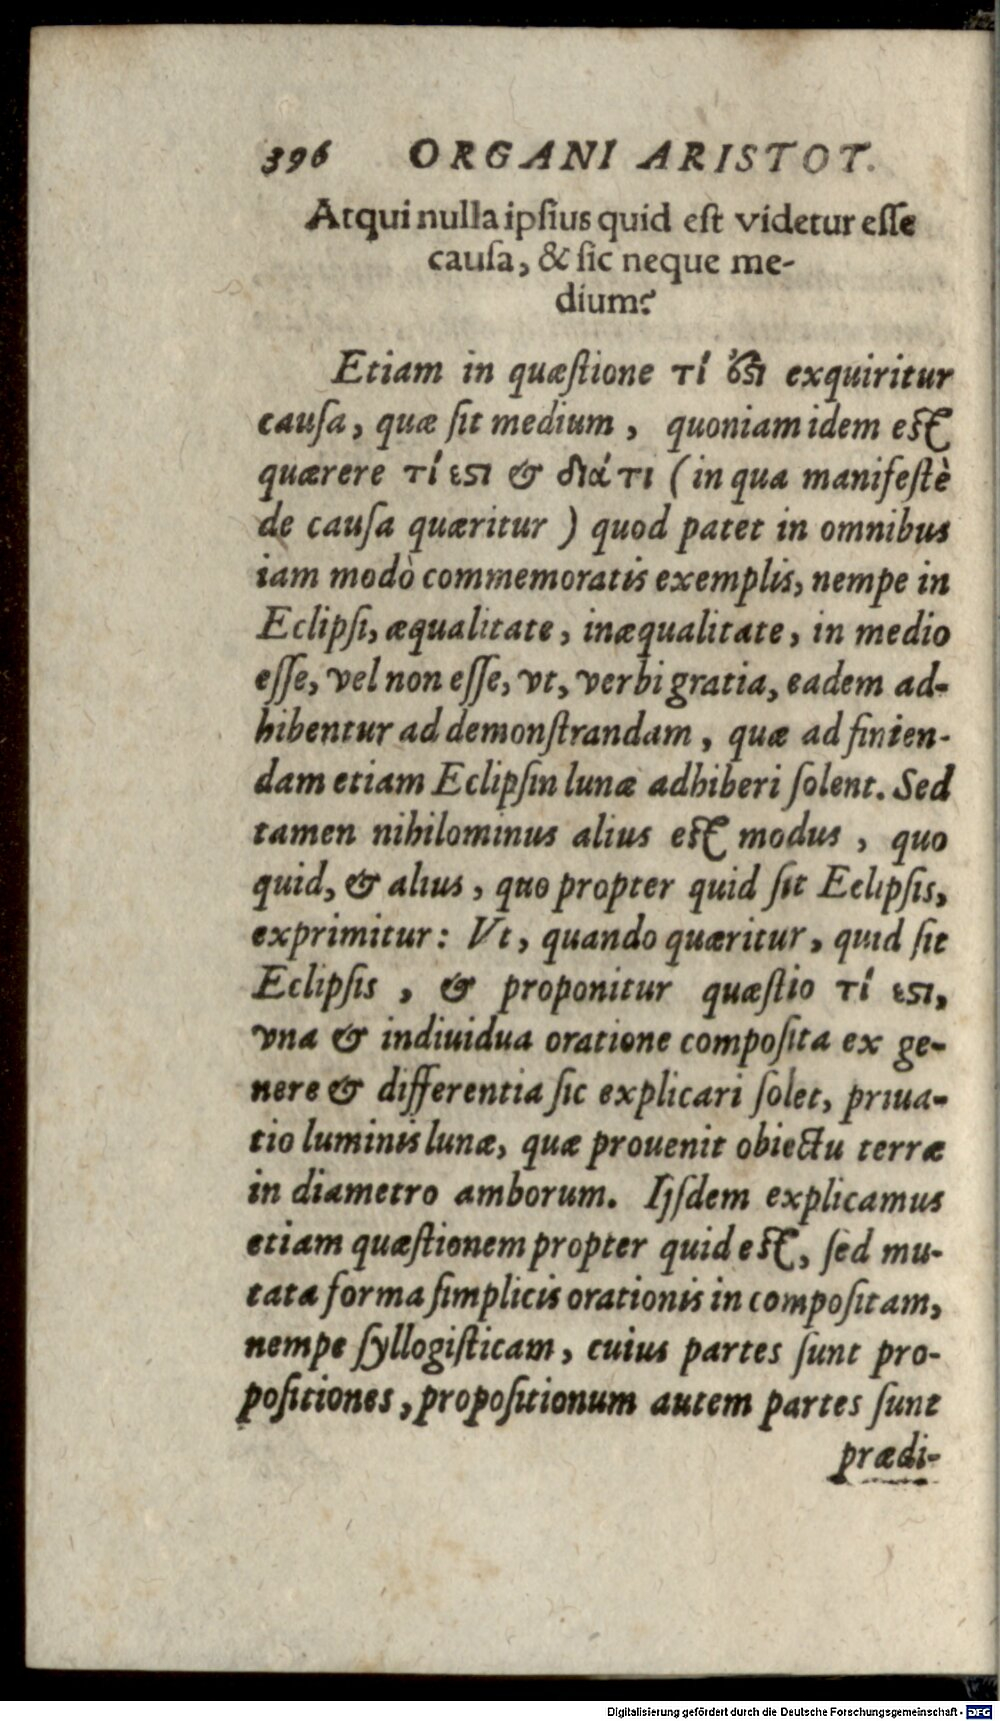 396 ORGANI ARISTOT.
Atqui nulla ipſius quid eſt videtur eſſe
cauſa, & ſic neque me-
dium?
Etiam in quæſtione τί ἐϛι exquiritur
cauſa, quæ ſit medium, quoniam idem eſt
quærere τί ἐϛι & διά τι (in qua manifeſtè
de cauſa quæritur) quod patet in omnibus
iam modò commemoratis exemplis, nempe in
Eclipſi, æqualitate, inæqualitate, in medio
eſſe, vel non eſſe, vt, verbi gratia, eadem ad-
hibentur ad demonſtrandam, quæ ad finien-
dam etiam Eclipſin lunæ adhiberi ſolent. Sed
tamen nihilominus alius eſt modus, quo
quid, & alius, quo propter quid ſit Eclipſis,
exprimitur: Vt, quando quæritur, quid ſit
Eclipſis, & proponitur quæſtio τί ἐϛι,
vna & indiuidua oratione compoſita ex ge-
nere & differentia ſic explicari ſolet, priua-
tio luminis lunæ, quæ prouenit obiectu terræ
in diametro amborum. Ijſdem explicamus
etiam quæſtionem propter quid eſt, ſed mu-
tata forma ſimplicis orationis in compoſitam,
nempe ſyllogiſticam, cuius partes ſunt pro-
poſitiones, propoſitionum autem partes ſunt
prædi-
Digitalisierung gefördert durch die Deutsche Forschungsgemeinschaft - DFG